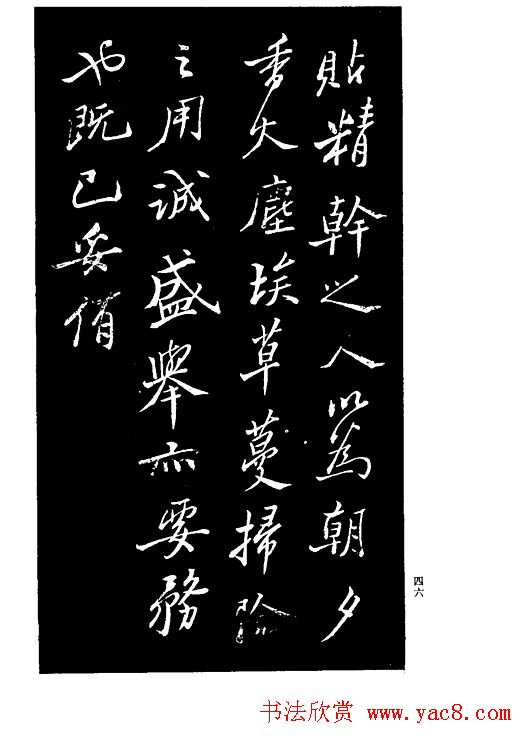 貼精幹之人以為朝夕
香火塵埃草蔓掃除
之用誠盛舉亦要務
也既已妥
四六
书法欣赏 www.yac8.com